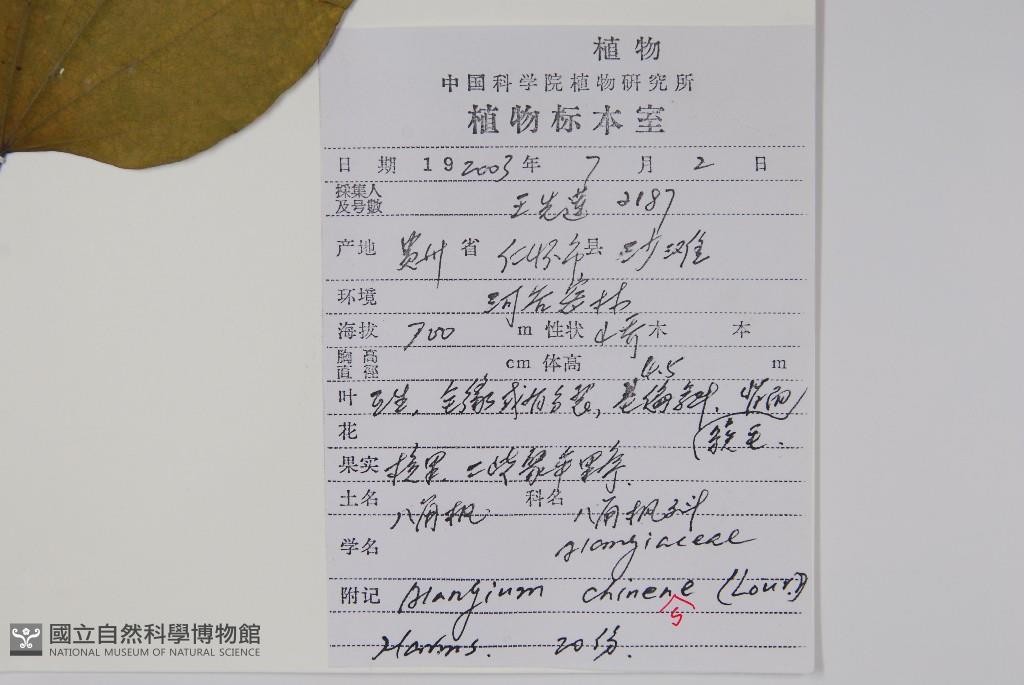 植物
中国科学院植物研究所
植物标本室
日 期 19 2003 年 7 月 2 日
採集人及号數 王先莲 2187
产地 贵州 省 仁怀市 县 沙滩
环境 河谷密林
海拔 700 m 性状 乔 木 本
胸高直徑 cm 体高 4.5 m
叶 互生，全缘或有分裂，基偏斜，背面
花 绒毛.
果实 核果，二歧聚伞果序.
土名 八角枫 科名 八角枫科
学名 Alangiaceae
附记 Alangium chinene (Lour.)
s
Harms. 20份.
國立自然科學博物館
NATIONAL MUSEUM OF NATURAL SCIENCE